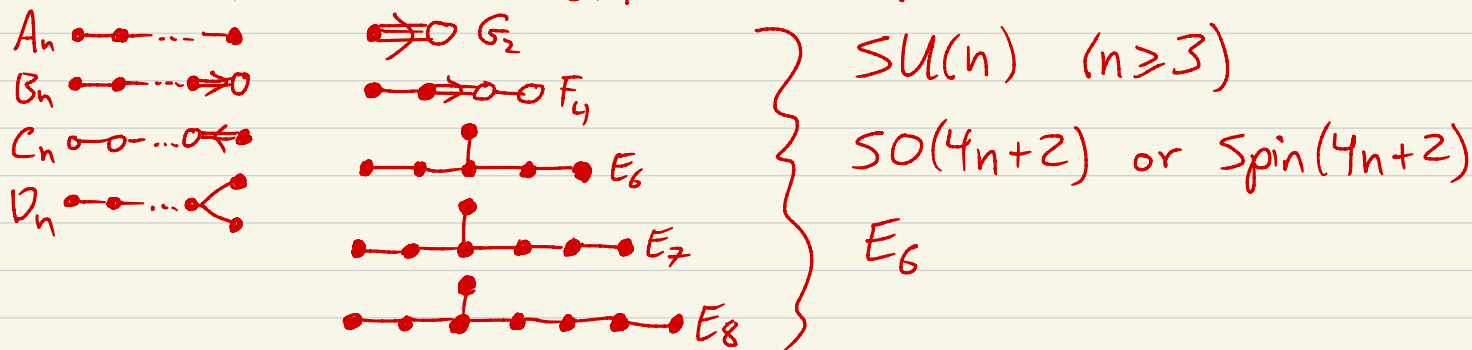 Aₙ
Bₙ
Cₙ
Dₙ
G₂
F₄
E₆
E₇
E₈
SU(n) (n≥3)
SO(4n+2) or Spin(4n+2)
E₆